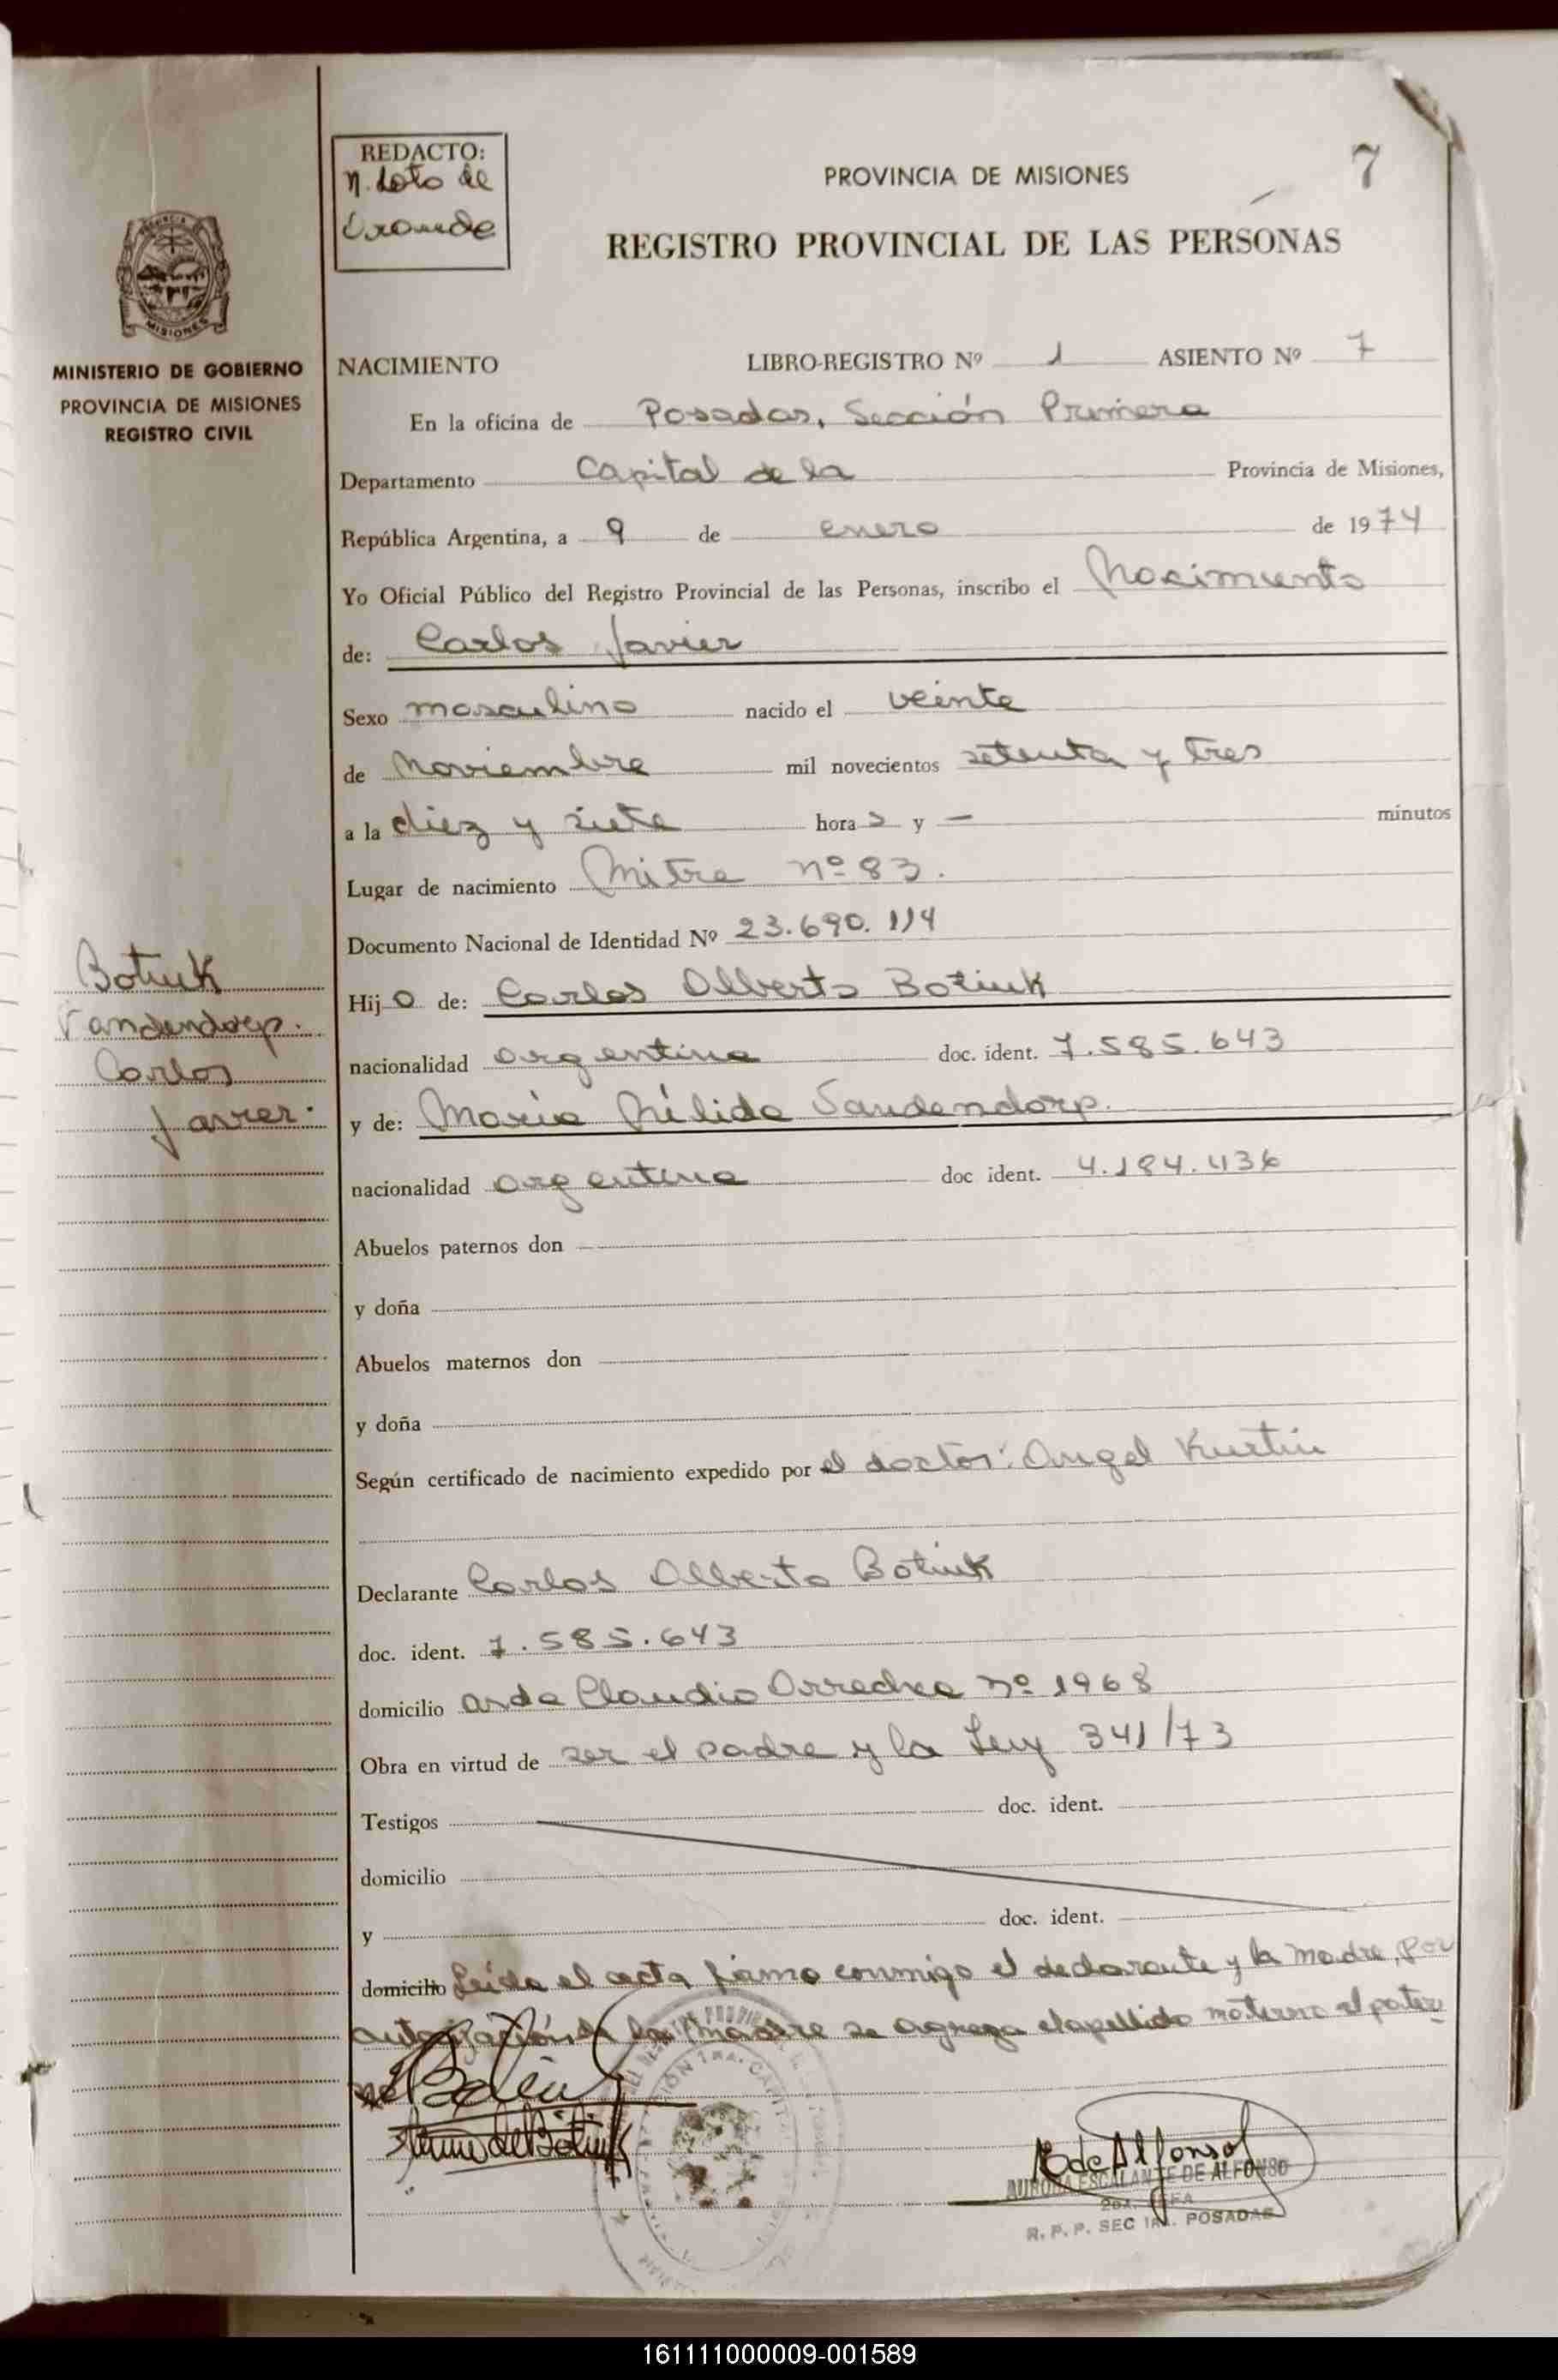 REDACTO:
N. Soto de
PROVINCIA DE MISIONES
7
REGISTRO PROVINCIAL DE LAS PERSONAS
MISIONES
MINISTERIO DE GOBIERNO
PROVINCIA DE MISIONES
REGISTRO CIVIL
NACIMIENTO LIBRO-REGISTRO Nº 1 ASIENTO Nº 7
En la oficina de Posadas, Sección Primera
Departamento Capital de la Provincia de Misiones,
República Argentina, a 9 de enero de 1974
Yo Oficial Público del Registro Provincial de las Personas, inscribo el Nacimiento
de: Carlos Javier
Sexo masculino nacido el veinte
de Noviembre mil novecientos setenta y tres
a la diez y siete hora s y — minutos
Lugar de nacimiento Mitre nº 83.
Documento Nacional de Identidad Nº 23.690.114
Botiuk
Vandendorp.
Carlos
Javier.
Hij o de: Carlos Alberto Botiuk
nacionalidad argentina doc. ident. 7.585.643
y de: María Nélida Vandendorp.
nacionalidad argentina doc ident. 4.184.436
Abuelos paternos don
y doña
Abuelos maternos don
y doña
Según certificado de nacimiento expedido por el doctor: Angel Kurtin
Declarante Carlos Alberto Botiuk
doc. ident. 7.585.643
domicilio avda Claudio Arrechea nº 1968
Obra en virtud de ser el padre y la Ley 341/73
Testigos doc. ident.
domicilio
y doc. ident.
domicilio Leída el acta firma conmigo el declarante y la madre, por
autorización de la madre se agrega el apellido materno al pater
no
de Botiuk
E de Alfonso
AURORA ESCALANTE DE ALFONSO
2da. JEFA
R. P. P. SEC 1RA. POSADAS
161111000009-001589